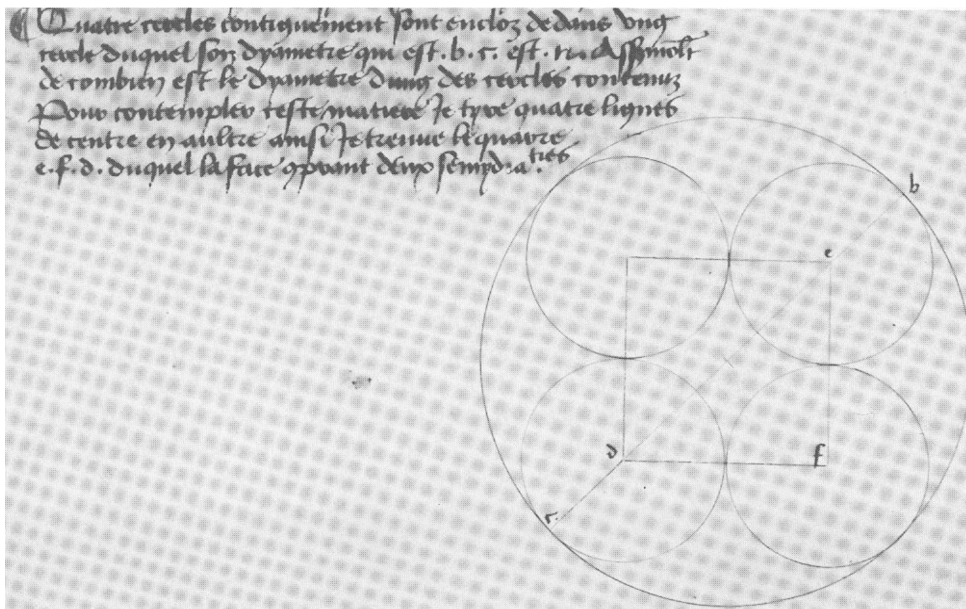 ¶ Quatre cercles contiguement sont encloz dedans ung
cercle duquel son dyametre qui est .b.c. est .12. Assavoir
de combien est le dyametre dung des cercles contenuz
Pour contempler ceste matiere Je tyre quatre lignes
de centre en aultre ainsi Je treuve le quarre
e.f.d. duquel la face 9prant deux semydyatres.
b
e
d
f
c